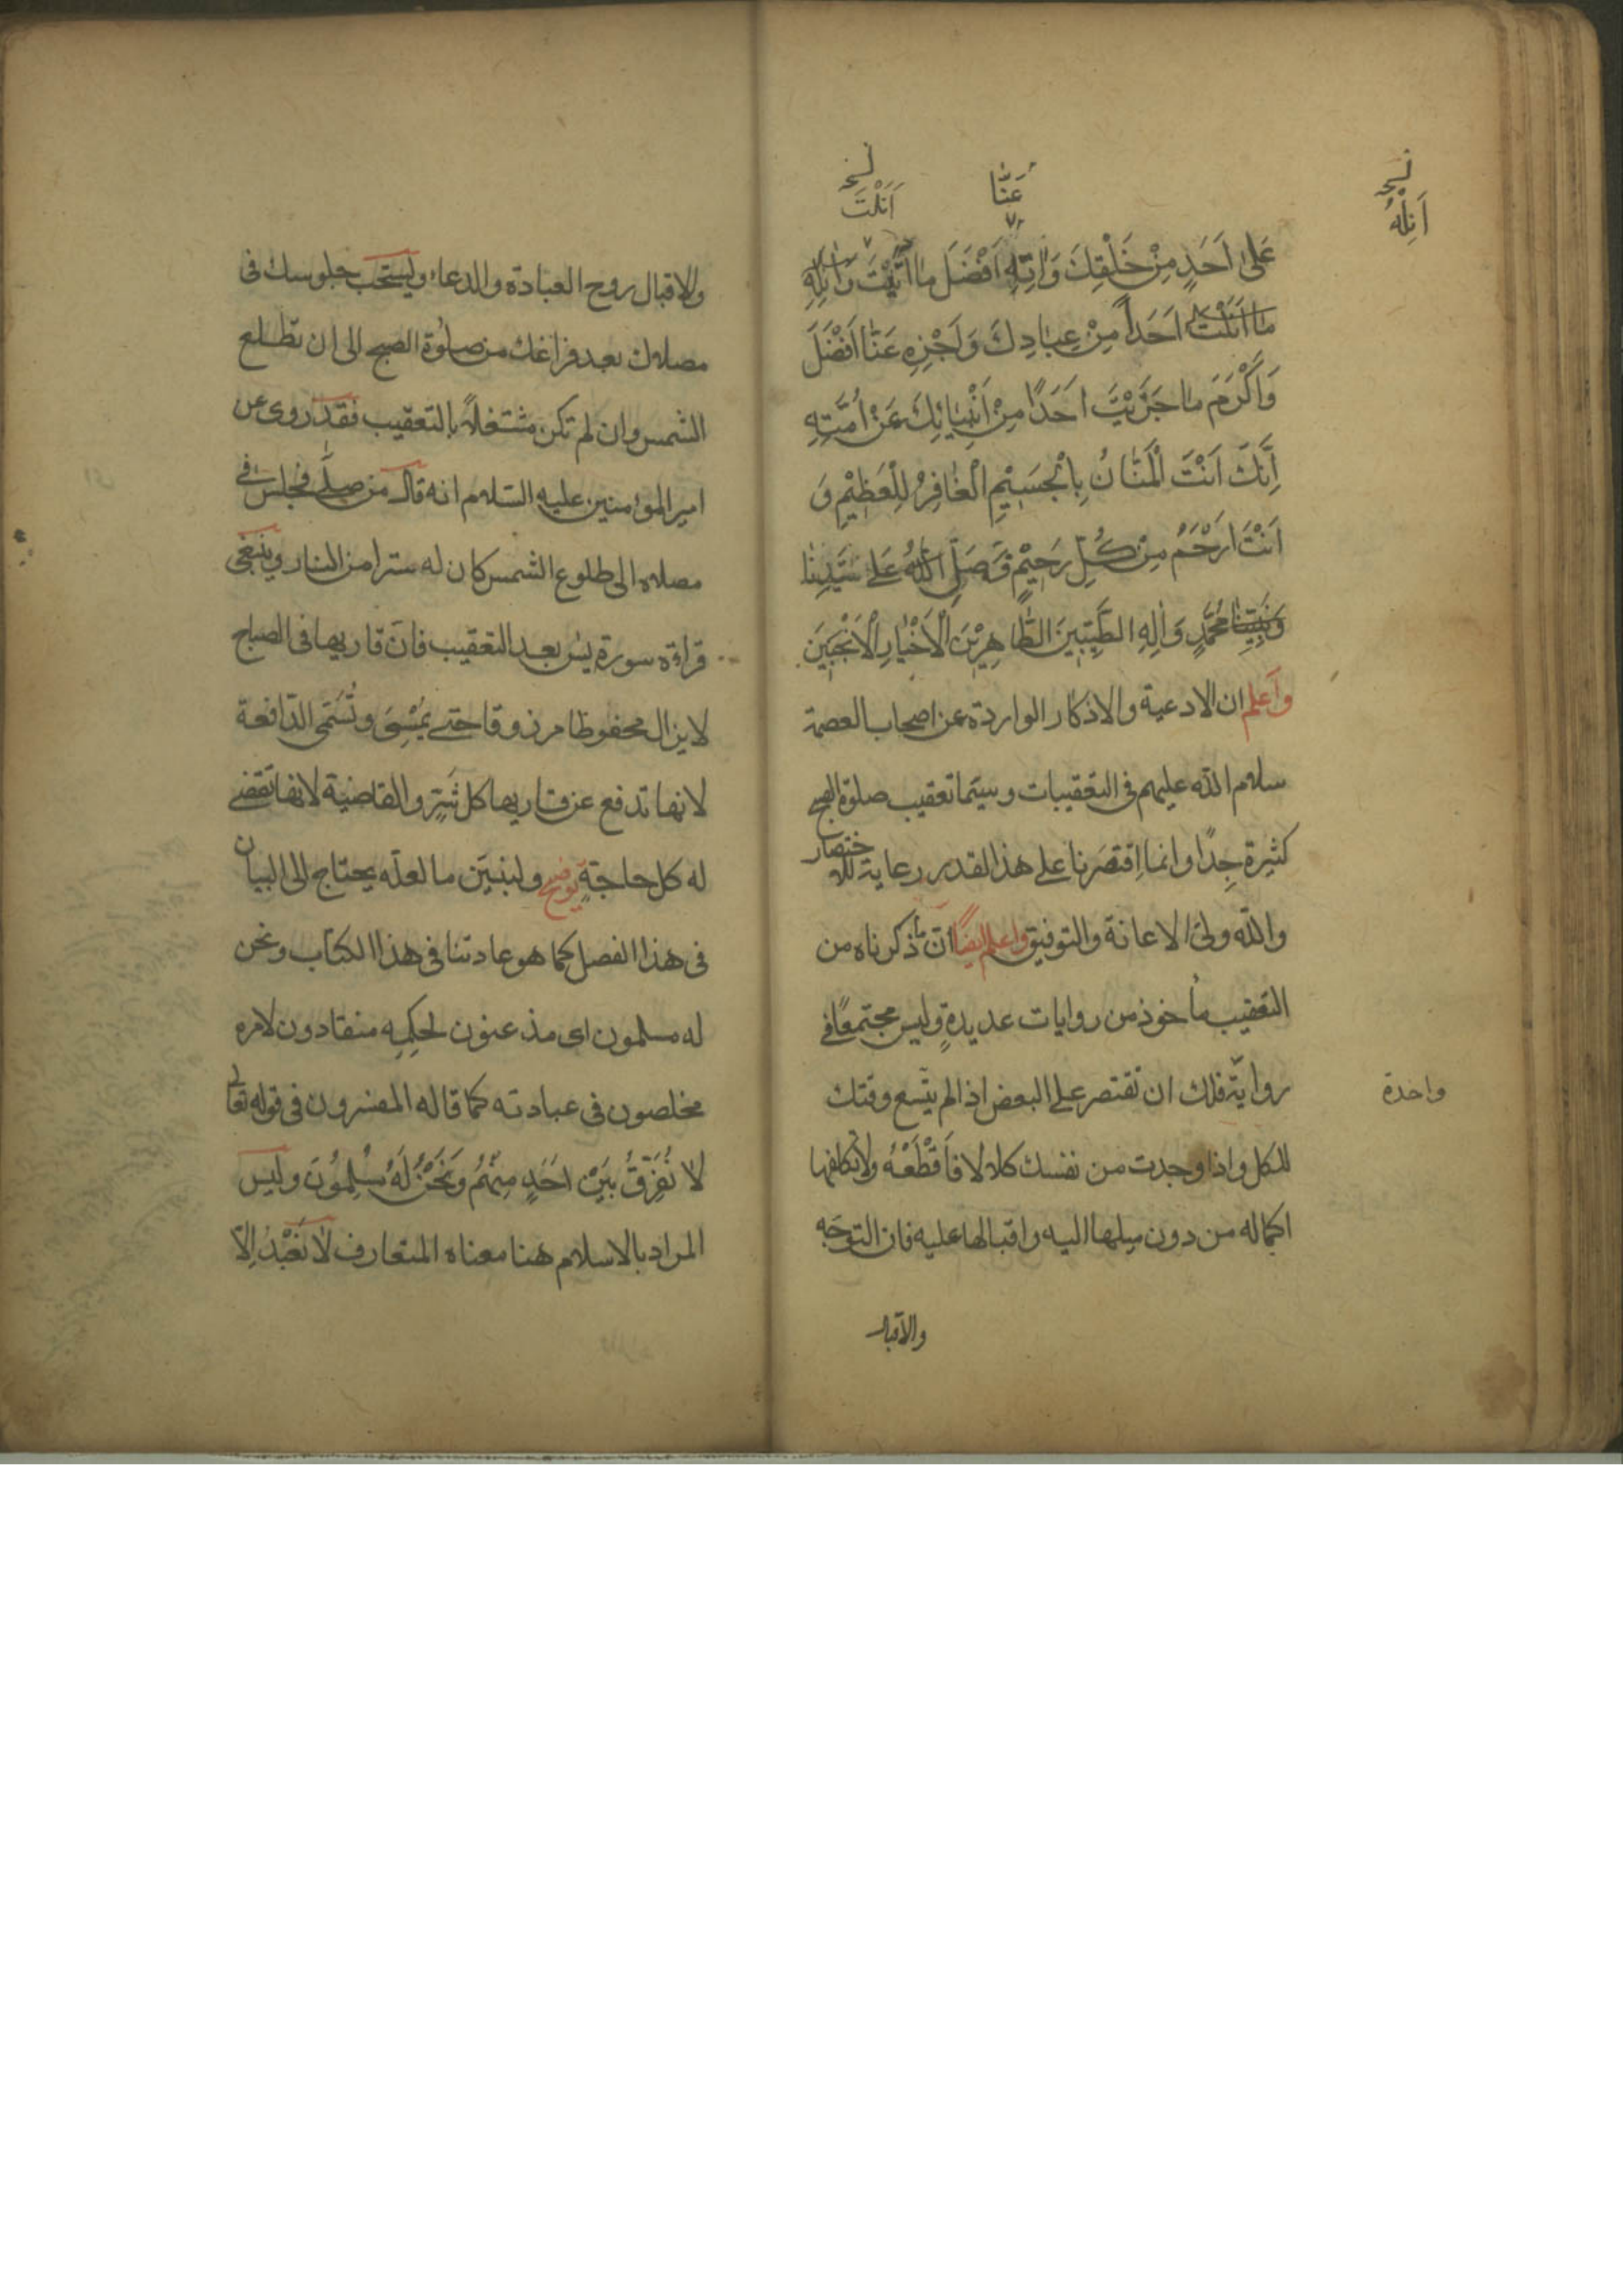 نسخه
اَنِلْهُ
عَنّا
نسخه
اَنَلْتَ
عَلىٰ اَحَدٍ مِنْ خَلْقِكَ وَاٰتِهِ اَفْضَلَ مٰا اٰتَيْتَ وَاَنِلْهِ
مٰا اَنَلْتَ اَحَداً مِنْ عِبٰادِكَ وَاَجْزِهِ عَنّٰا اَفْضَلَ
وَاَكْرَمَ مٰا جَزَيْتَ اَحَدًا مِنْ اَنْبِيٰائِكَ عَنْ اُمَّتِهِ
اِنَّكَ اَنْتَ الْمَنّٰانُ بِالْجَسِيْمِ الْغٰافِرُ لِلْعَظِيْمِ وَ
اَنْتَ اَرْحَمُ مِنْ كُلِّ رَحِيْمٍ فَصَلِّ اللّٰهُ عَلىٰ سَيِّدِنٰا
وَنَبِيِّنٰا مُحَمَّدٍ وَاٰلِهِ الطَّيِّبِينَ الطّٰاهِرِيْنَ الْاَخْيٰارِ الْاَنْجَبِيَن
واَعلم ان الادعية والاذكار الواردة عن اصحاب العصمة
سلام الله عليهم في التعقيبات وسيّما تعقيب صلوة الصبح
كثيرة جِدًا وانما اِقتصَرنا على هذا القدر رعاية للاختصار
والله ولىّ الاعانة والتوفيق واعلم ايضًا انّ ما ذكرناه من
التعقيب مأخوذ من روايات عديدةٍ وليس مجتمعًا في
رواية فلك ان تقتصر على البعض اذا لم يتّسع وقتك
واحدة
للكل واذا وجدت من نفسك كلالا فاَقْطَعْهُ ولا تكلفها
اكماله من دون ميلها اليه واقبالها عليه فان التوجّه
والاقبال
والاقبال روح العبادة والدعاء ويستحب جلوسك في
مصلاك بعد فراغك من صلوٰة الصبح الى ان تطلع
الشمس وان لم تكن مشتغلاً بالتعقيب فقد روى عن
امير المؤمنين عليه السّلام انه قال من صلّى فجلس في
مصلاه الى طلوع الشمس كان له سترا من النار وينبغي
قراءة سورة يس بعد التعقيب فانّ قاريها في الصباح
لايزال محفوظا مرزوقا حتى يمْسِىَ وتُسَمّى الدّافعة
لانها تدفع عن قاريها كل شَرٍّ والقاضية لانها تقضي
له كل حاجةٍ توضيح ولنبيّن ما لعلّه يحتاج الى البيان
في هذا الفصل كما هو عادتنا في هذا الكتاب ونحن
له مسلمون اى مذعنون لحكِمِه منقادون لامره
مخلصون في عبادته كما قاله المفسرون في قوله تعالى
لا نُفَرِّقُ بَيْنَ اَحَدٍ مِنْهُمْ وَنَحْنُ لَهُ مُسْلِمُونَ وليس
المراد بالاسلام هنا معناه المتعارف لا نَعْبُدُ اِلّا